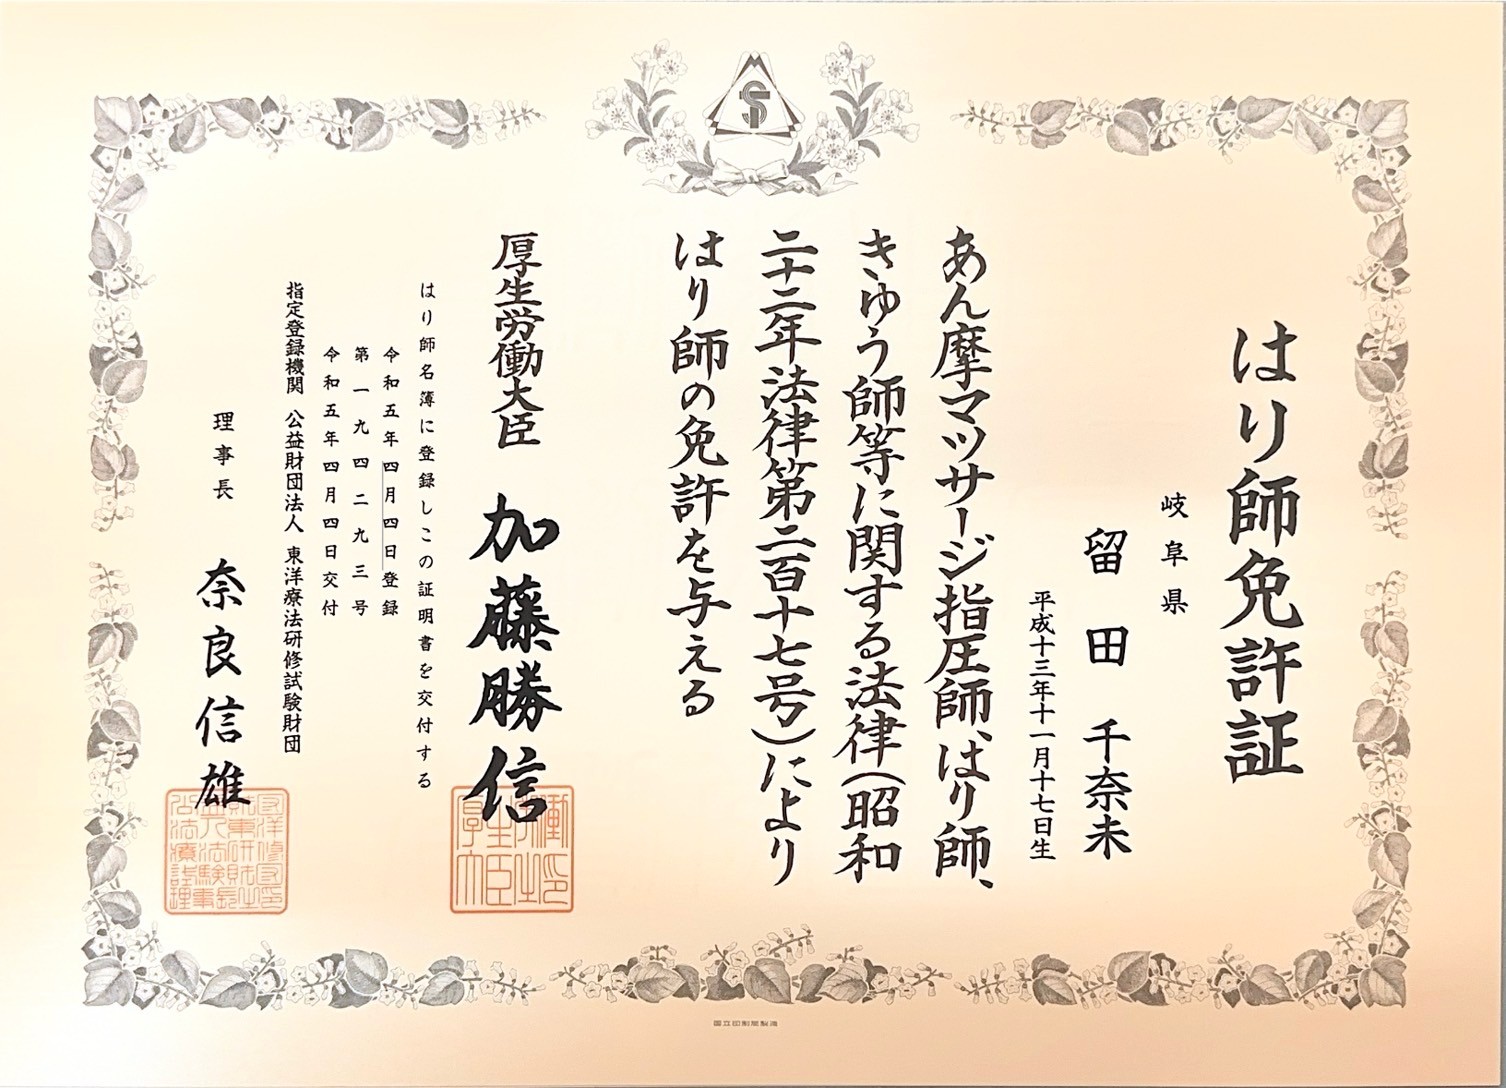 はり師免許証
岐阜県
留田 千奈未
平成十三年十一月十七日生
あん摩マツサージ指圧師、はり師、
きゆう師等に関する法律(昭和
二十二年法律第二百十七号)により
はり師の免許を与える
厚生労働大臣 加藤勝信
はり師名簿に登録しこの証明書を交付する
令和五年四月四日登録
第一九四二九三号
令和五年四月四日交付
指定登録機関 公益財団法人 東洋療法研修試験財団
理事長 奈良信雄
国立印刷局製造